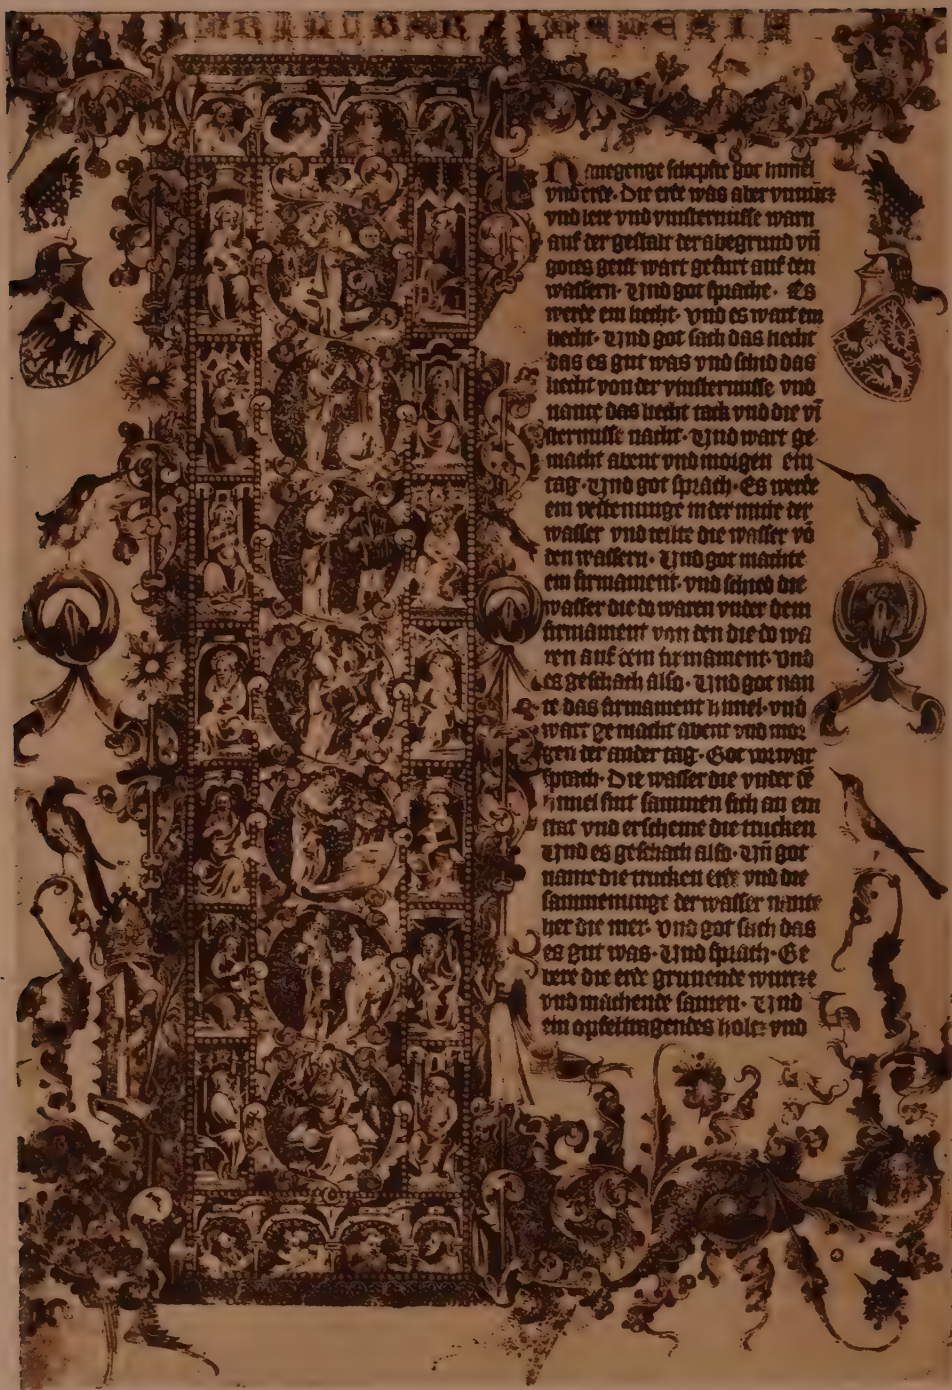 anegenge schepfte got himel
vnd erde · Die erde was aber vnnucz
vnd lere vnd vinsternusse warn
auf der gestalt der abegrund vñ
gotes geist wart gefurt auf den
wassern · Vnd got sprache · Es
werde ein liecht · vnd es wart ein
liecht · Vnd got sach das liecht
das es gut was vnd schid das
liecht von der vinsternusse vnd
nante das liecht tack vnd die vī
sternusse nacht · Vnd wart ge
macht abent vnd morgen ein
tag · Vnd got sprach · Es werde
ein vestenunge in der mitte der
wasser vnd teilte die wasser vō
den wassern · Vnd got machte
ein firmament · vnd schied die
wasser die do waren vnter dem
firmament von den die do wa
ren auf dem firmament · vnd
es geschach also · Vnd got nan
te das firmament himel · vnd
wart gemacht abent vnd mor
gen der ander tag · Got
sprach · Die wasser die vnter
himel sint sammen sich an ein
stat vnd erscheine die trucken
Vnd es geschach also · Vñ got
nante die trucken erde vnd die
sammenunge der wasser nante
her die mer · vnd got sach das
es gut was · Vnd sprach · Ge
bere die erde grunende wurcze
vnd machende samen · Vnd
ein opfeltragendes holcz vnd